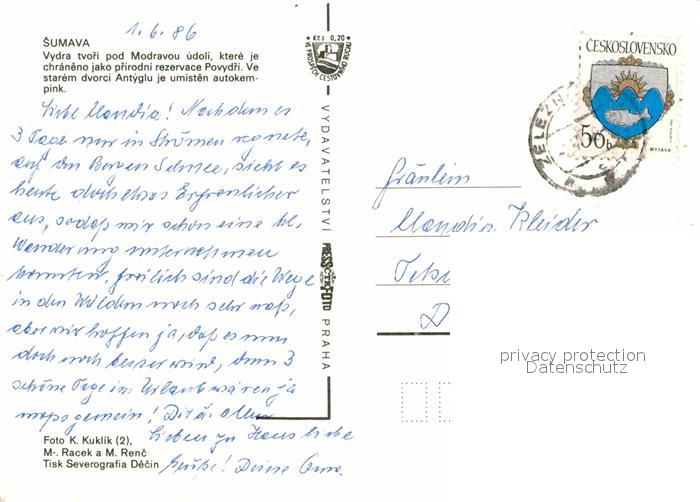 1.6.86
ŠUMAVA
Vydra tvoří pod Modravou údolí, které je
chráněno jako přírodní rezervace Povydří. Ve
starém dvorci Antýglu je umístěn autokem-
pink.
Liebe Mandia! Nachdem es
3 Tage nur in Strömen regnete,
auf den Bergen Schnee, sieht es
heute doch etwas Erfreulicher
aus, sodaß wir schon eine kl.
Wanderung unternehmen
konnten. Freilich sind die Wege
in den Wäldern noch sehr naß,
aber wir hoffen ja, daß es nun
doch noch besser wird, denn 3
schöne Tage im Urlaub wären ja
zu Hause liebe
Grüße! Deine Oma.
Foto K. Kuklík (2),
M. Racek a M. Renč
Tisk Severografia Děčín
Kčs 0,20
VE PROSPĚCH CESTOVNÍHO RUCHU
VYDAVATELSTVÍ
PRESSFOTO
PRAHA
ČESKOSLOVENSKO
50h
MYJAVA
ŽELEZN
Fräulein
Kleider
D
privacy protection
Datenschutz